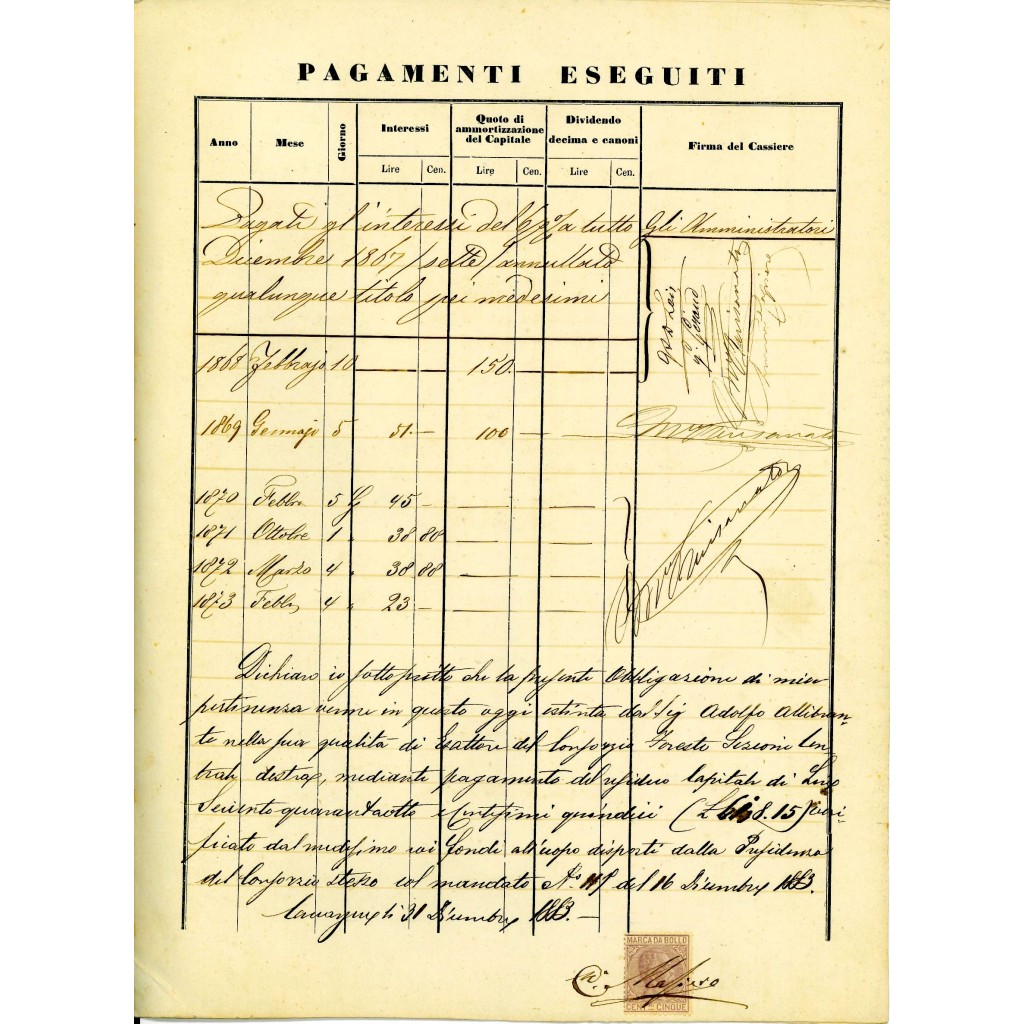 PAGAMENTI ESEGUITI
Anno Mese Giorno Interessi Quoto di ammortizzazione del Capitale Dividendo decima e canoni Firma del Cassiere
Lire Cen. Lire Cen. Lire Cen.
Pagati gl'interessi del 6 p% a tutto Gli Amministratori
Dicembre 1867 / sette / annullato
qualunque titolo pei medesimi
1868 Febbrajo 10 — 150 —
1869 Gennajo 5 51 — 100 — —
1870 Febbr 5 45 — — —
1871 Ottobre 1 38 80 — —
1872 Marzo 4 38 88 — —
1873 Febbr 4 23 — — —
Dichiaro io sottoscritto che la presente Obbligazione di mia
pertinenza venne in questo oggi estinta dal Sig Adolfo Alibran-
te nella sua qualità di Esattore del Consorzio Foresto Sezioni Cen
trali destra, mediante pagamento del residuo Capitale di Lire
Seicento quarantaotto e Centesimi quindici (L 648.15) veri-
ficato dal medesimo coi fondi all'uopo disposti dalla Presidenza
del Consorzio stesso col mandato No del 16 Dicembre 1883.
Cavarzere li 31 Dicembre 1883. —
MARCA DA BOLLO
CENT. CINQUE